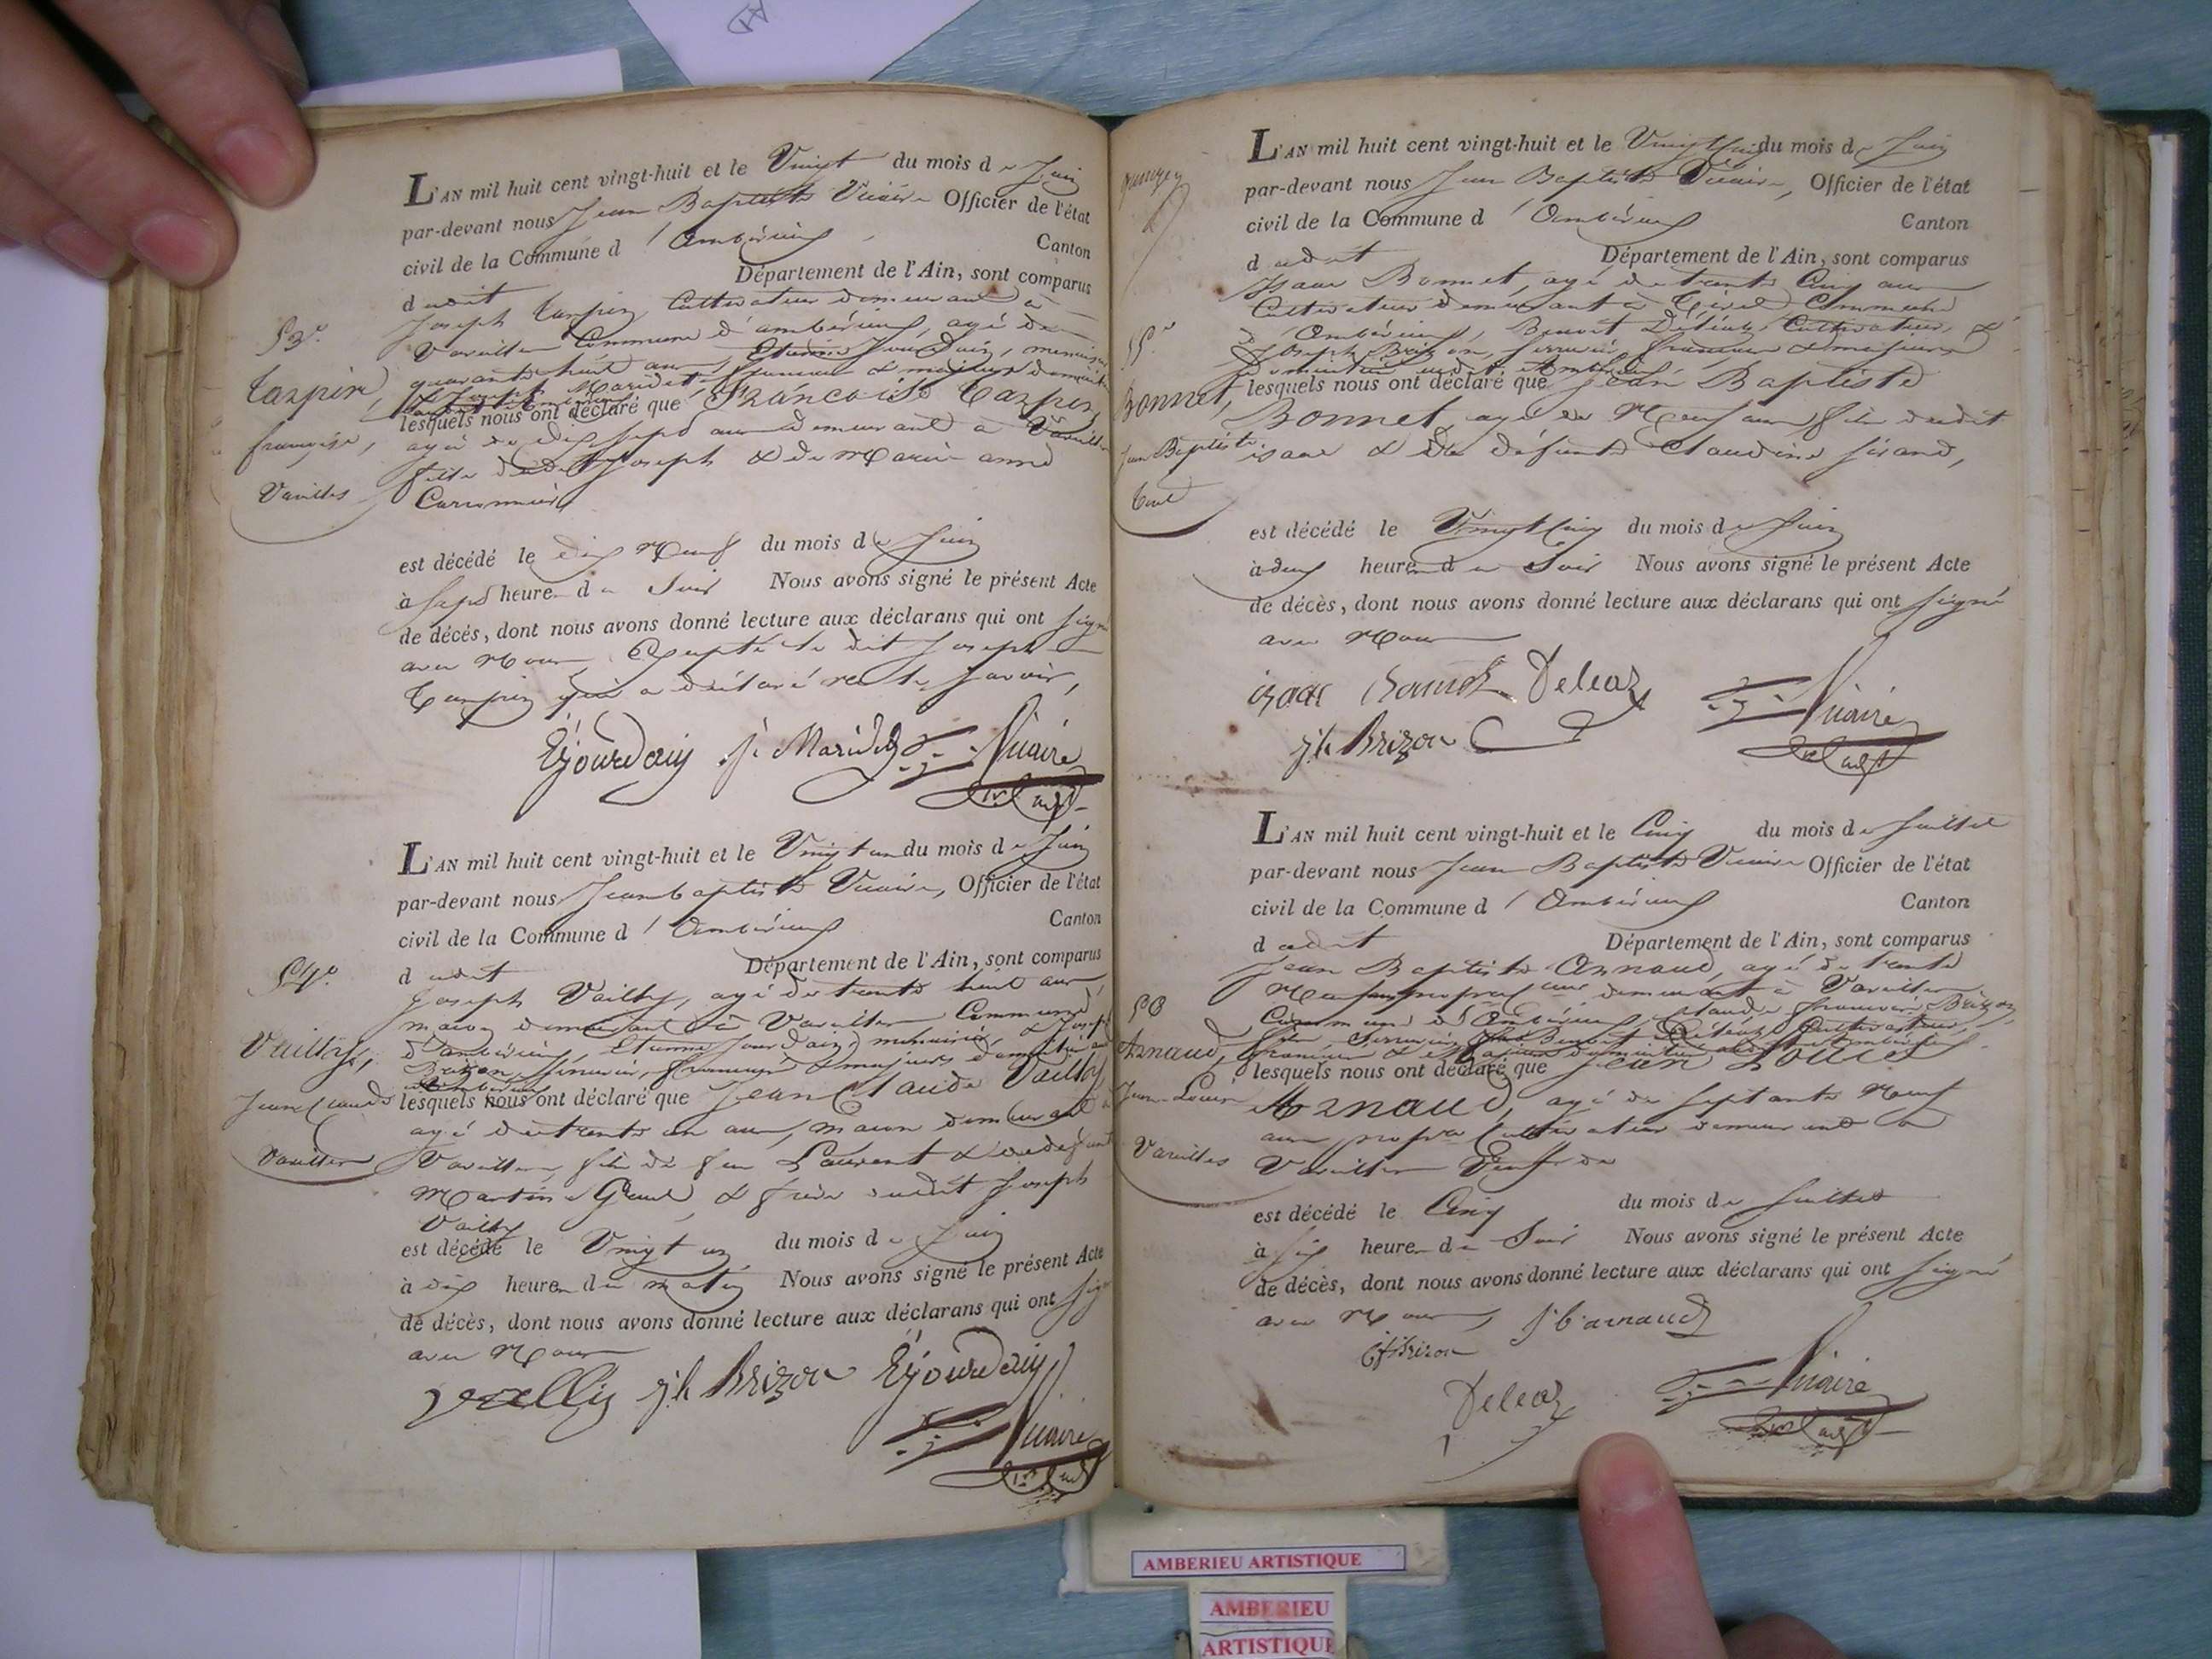 L'AN mil huit cent vingt-huit et le Vingt du mois de Juin
par-devant nous Jean Baptiste Vicaire Officier de l'état
civil de la Commune d'Ambérieux Canton
dudit Département de l'Ain, sont comparus
Joseph Tarpin Cultivateur demeurant à
Vareilles Commune d'ambérieux, agé de
quarante huit ans, Etienne Jourdain, menuisier
& Joseph Maridet, français & majeurs
lesquels nous ont déclaré que Françoise Tarpin,
agée de dix sept ans demeurant à Vareilles
fille dudit Joseph & de Marie anne
est décédé le dix Neuf du mois de Juin
à Sept heures du Soir Nous avons signé le présent Acte
de décès, dont nous avons donné lecture aux déclarans qui ont signé
avec Nous Excepté le dit Joseph
Tarpin qui a déclaré ne le savoir,
Ejourdain j. Maridet Vicaire
53e
Tarpin,
françoise,
Vareilles
L'AN mil huit cent vingt-huit et le Vingt un du mois de Juin
par-devant nous Jean baptiste Vicaire, Officier de l'état
civil de la Commune d'Ambérieux Canton
dudit Département de l'Ain, sont comparus
Joseph Vailly, agé de trente huit ans,
maçon demeurant à Vareilles Commune
d'ambérieux, Etienne Jourdain, menuisier, & Joseph
Brizon, serrurier, français & majeurs
lesquels nous ont déclaré que Jean Claude Vailly
agé de trente un ans, maçon demeurant à
Vareilles, fils de feu Laurent & de defunte
Martine & frère dudit Joseph
Vailly
est décédé le Vingt un du mois de Juin
à dix heures du matin Nous avons signé le présent Acte
de décès, dont nous avons donné lecture aux déclarans qui ont signé
avec Nous
jh Brizon Ejourdain
Vicaire
54e
Vailly,
Jean Claude
Vareilles
L'AN mil huit cent vingt-huit et le Vingt Cinq du mois de Juin
par-devant nous Jean Baptiste Vicaire, Officier de l'état
civil de la Commune d'Ambérieux Canton
dudit Département de l'Ain, sont comparus
Isaac Bonnet, agé de trente Cinq ans
Cultivateur demeurant à Commune
d'Ambérieux, Benoit Cultivateur, &
Joseph Brizon, serrurier français & majeurs
lesquels nous ont déclaré que Jean Baptiste
Bonnet, agé de Neuf ans, fils dudit
isaac & de défunte Claudine
est décédé le Vingt Cinq du mois de Juin
à deux heures du Soir Nous avons signé le présent Acte
de décès, dont nous avons donné lecture aux déclarans qui ont signé
avec Nous
isaac Bonnet Deleaz Vicaire
jh Brizon
55e
Bonnet,
Jean Baptiste
L'AN mil huit cent vingt-huit et le Cinq du mois de Juillet
par-devant nous Jean Baptiste Vicaire Officier de l'état
civil de la Commune d'Ambérieux Canton
dudit Département de l'Ain, sont comparus
Jean Baptiste Arnaud, agé de trente
Neuf ans demeurant à Vareilles
Commune d'Ambérieux, Claude françois Brizon,
Benoit Cultivateur,
lesquels nous ont déclaré que Jean Louis
Arnaud, agé de septante Neuf
ans, Cultivateur demeurant à
Vareilles Veuf de
est décédé le Cinq du mois de Juillet
à Six heures du Soir Nous avons signé le présent Acte
de décès, dont nous avons donné lecture aux déclarans qui ont signé
avec Nous, j b arnaud
Brizon
Deleaz Vicaire
56
Arnaud,
Jean-Louis
Vareilles
AMBERIEU ARTISTIQUE
AMBERIEU
ARTISTIQUE